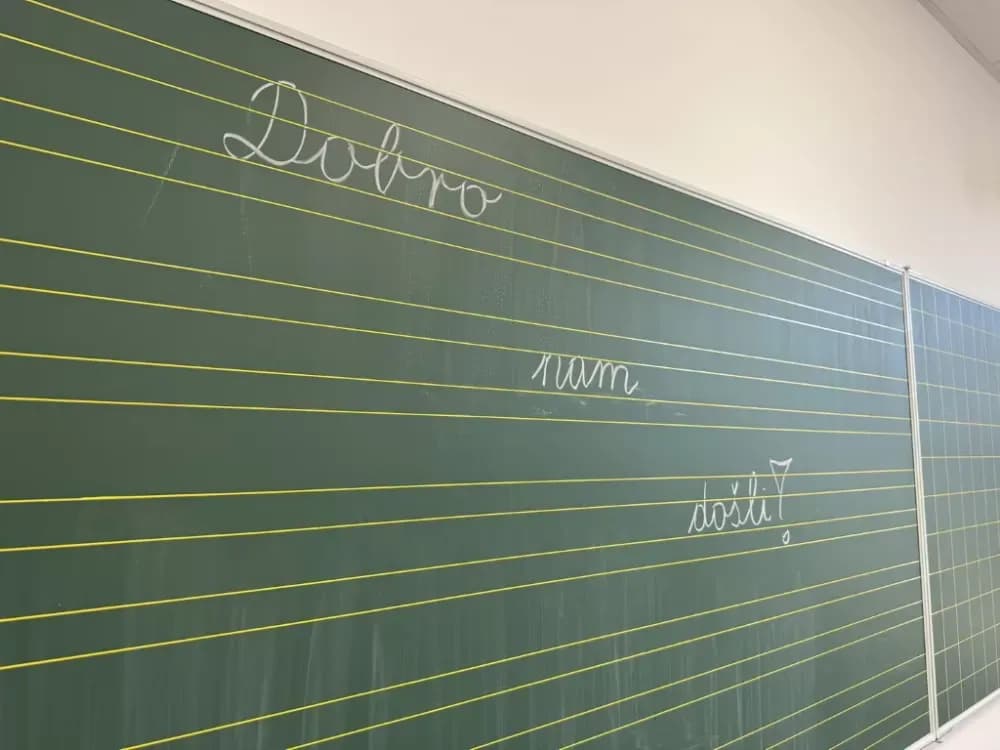 Dobro
nam
došli!